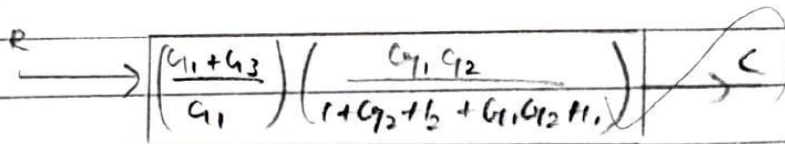 R (G1 + G3 / G1) (G1 G2 / 1 + G2 + H2 + G1 G2 H1) C